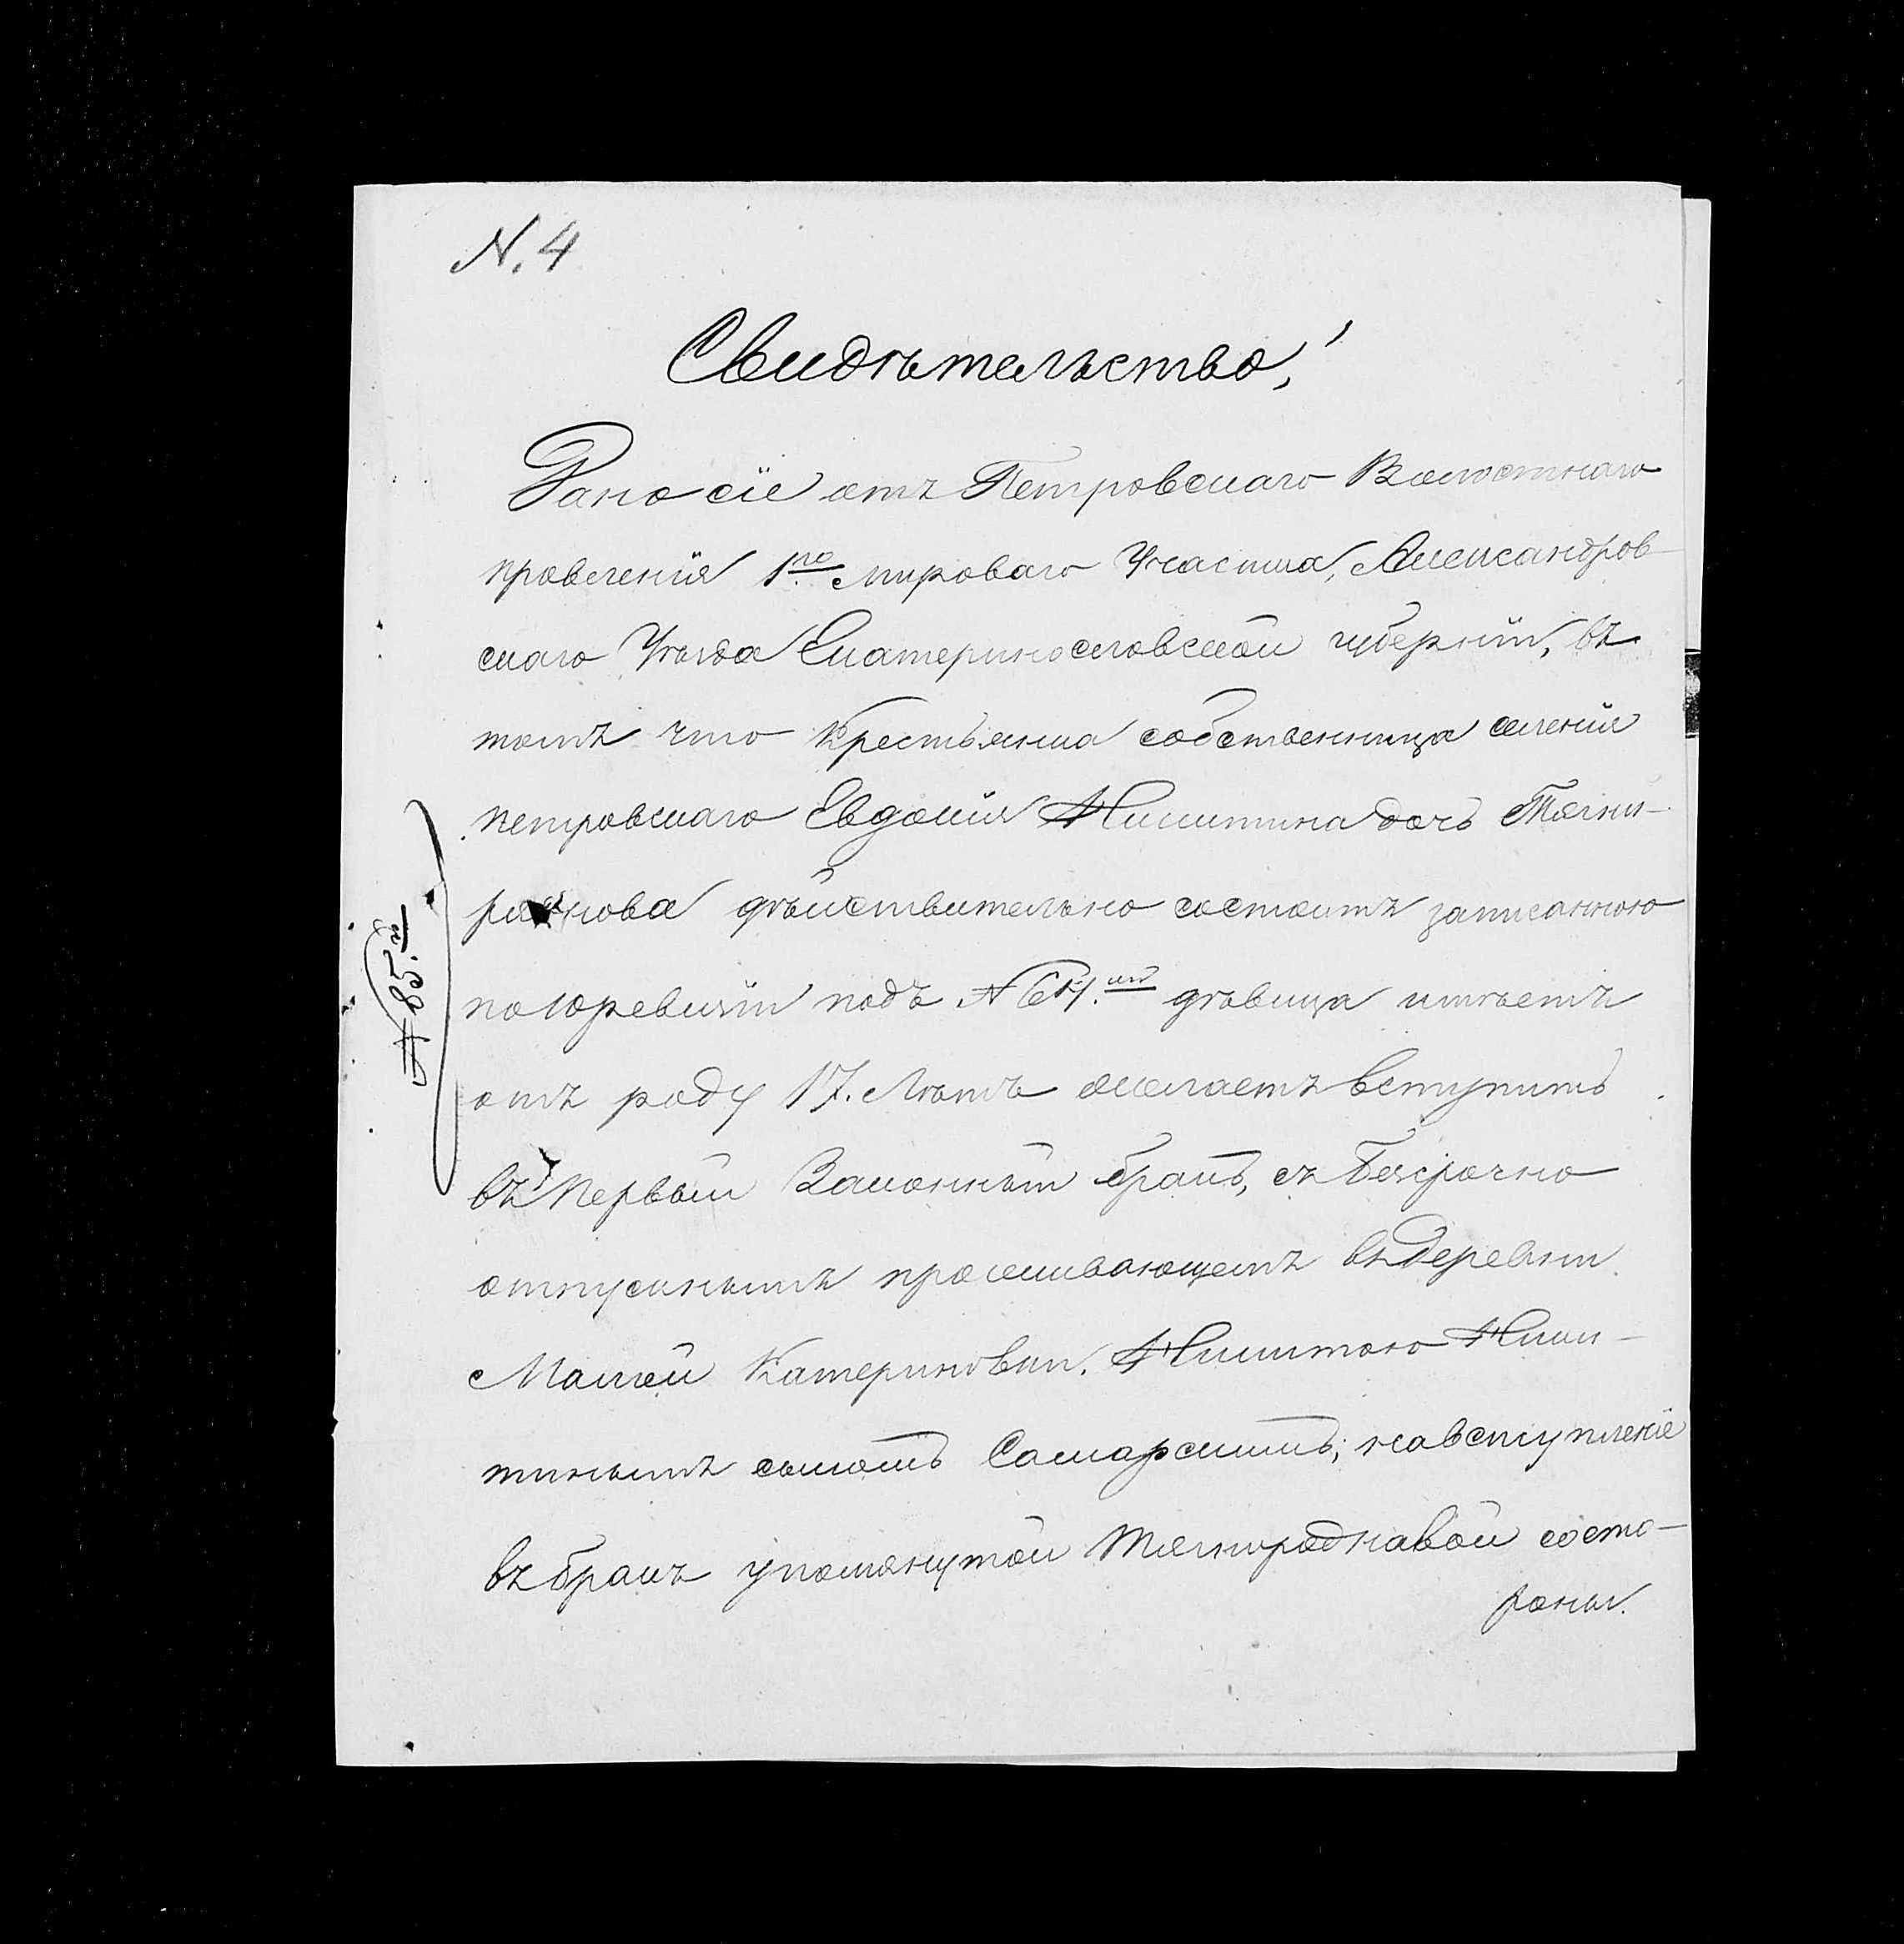 N. 4
Свидѣтельство,
Дано сіе отъ Петровскаго Волостнаго
правленія 1го мироваго Участка, Александров-
скаго Уѣзда Екатеринославской губерніи, въ
томъ что крестьянка собственница селенія
петровскаго Евдокія Никитина дочь
дѣйствительно состоитъ записанною
по 10 ревизіи подъ N дѣвица имѣетъ
отъ роду 17. Лѣтъ желаетъ вступить
въ первый Законный бракъ, съ Безсрочно
отпускнымъ проживающемъ въ деревни
Малой Катериновки. Никитою Ники-
тинымъ сыномъ Самарскимъ, на вступленіе
въ бракъ упомянутой состо-
роны.
N 85.й